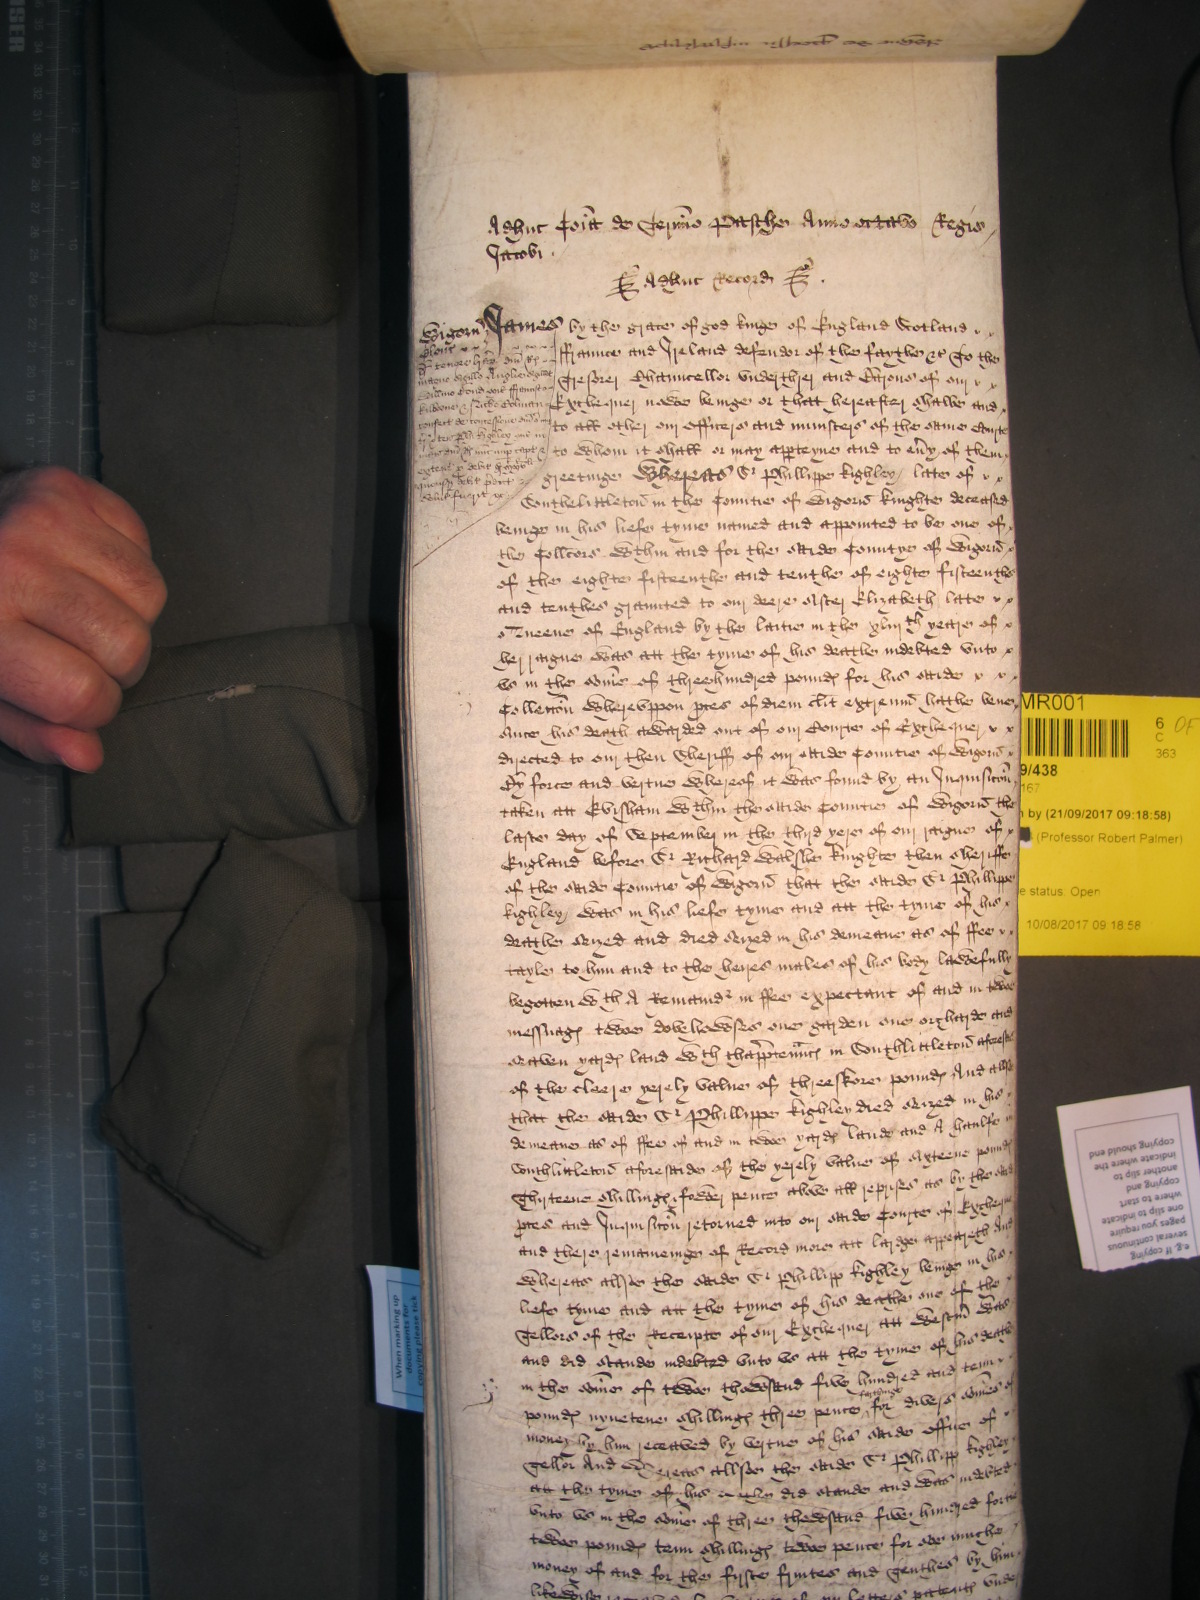 Adhuc Coia de Termio Pasche Anno octavo Regis
Jacobi.
Adhuc Record
Wigorn
James by the grace of god kinge of England Scotland
ffraunce and Ireland defendor of the faythe &c To the
Tresorer Chauncellor undertrer and Barons of our
Exchequer nowe beinge or that hereafter shalbe and
to all other our officers and ministers of the same Courte
to whom it shall or may apperteyne and to eny of them
greetinge Whereas Sr Phillippe Kighley late of
Southelittleton in the Countie of Wigorn knighte deceased
beinge in his liefe tyme named and appointed to be one of
the Collcors wthin and for the saide Countye of Wigorn
of the eighte fifteenthe and tenthe of eighte fifteenthes
and tenthes graunted to our deere sister Elizabeth late
Queene of England by the laitie in the xliiith yeare of
her raigne was att the tyme of his deathe indebted unto
us in the some of threehundred pounds for his saide
Colleccon whereuppon proces of diem clit extremu hathe bene
since his death awarded out of our Courte of Exchequer
directed to our then Sheriff of our saide Countie of Wigorn
By force and vertue whereof it was found by an Inquisicon
taken att Evisham wthin the saide Countie of Wigorn the
laste day of September in the third yere of our raigne of
England before Sr Richard Walshe knighte then sheriffe
of the saide Countie of Wigorn that the saide Sr Phillippe
Kighley was in his liefe tyme and att the tyme of his
deathe seized and died seized in his demeane as of ffee
tayle to him and to the heires males of his body lawefully
begotten wth A Remaindr in ffee expectant of and in twoe
messuags twoe dovehowses one garden one orcharde and
seaven yards land wth thapptenncs in Southlittleton aforesaid
of the cleere yerely value of threeskore pounds And allso
that the saide Sr Phillippe Kighley died seized in his
demeane as of ffee of and in twoe yards lande and A haulfe in
Southlittleton aforesaide of the yerely value of sixteene pounds
Thirteene shillings fower pence above all reprises as by the said
proces and Inquisicon retorned into our saide Courte of Exchequer
and there remaineinge of Record more att lardge appeareth And
Whereas allsoe the saide Sr Phillipp Kighley beinge in his
liefe tyme and att the tyme of his deathe one of the
Tellors of the Receipte of our Exchequer att Westm was
and did stande indebted unto us att the tyme of his deathe
in the some of twoe thowsand five hundred and tenn
pounds nynetene shillings three pence farthinge for divers somes of
money by him receaved by vertue of his saide office of
Tellor And whereas allsoe the saide Sr Phillipp Kighley
att the tyme of his deathe did stande and was indebted
unto us in the some of three thowsand five hundred fortie
twoe pounds tenn shillings twoe pence for soe muche
money of and for the firste fruites and Tenthes by him
likewise receaved by vertue of our letters patents under
MR001
6 OF
C
363
9/438
167
by (21/09/2017 09:18:58)
(Professor Robert Palmer)
e status: Open
10/08/2017 09:18:58
e.g. If copying
several continuous
pages you require
one slip to indicate
where to start
copying and
another slip to
indicate where the
copying should end
When marking up
documents for
copying please tick